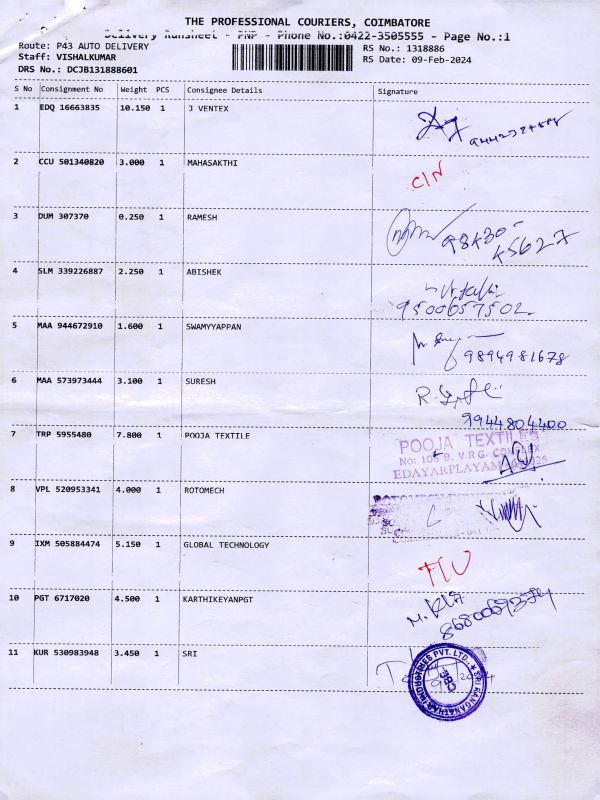 THE PROFESSIONAL COURIERS, COIMBATORE
Delivery Runsheet - PNP - Phone No.:0422-3505555 - Page No.:1
Route: P43 AUTO DELIVERY
RS No.: 1318886
Staff: VISHALKUMAR
RS Date: 09-Feb-2024
DRS No.: DCJB131888601
S No Consignment No Weight PCS Consignee Details Signature
1 EDQ 16663835 10.150 1 J VENTEX
2 CCU 501340820 3.000 1 MAHASAKTHI
C/N
3 DUM 307370 0.250 1 RAMESH
4 SLM 339226887 2.250 1 ABISHEK
9500657502
5 MAA 944672910 1.600 1 SWAMYYAPPAN
9894981678
6 MAA 573973444 3.100 1 SURESH
9944804400
7 TRP 5955480 7.800 1 POOJA TEXTILE
POOJA TEXTILES
V.R.G. COMPLEX
EDAYARPLAYAM
8 VPL 520953341 4.000 1 ROTOMECH
ROTOMECH
9 IXM 505884474 5.150 1 GLOBAL TECHNOLOGY
10 PGT 6717020 4.500 1 KARTHIKEYANPGT
11 KUR 530983948 3.450 1 SRI